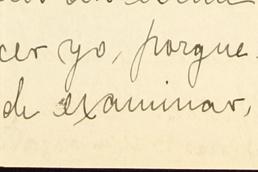 cer yo, porque
de examinar,